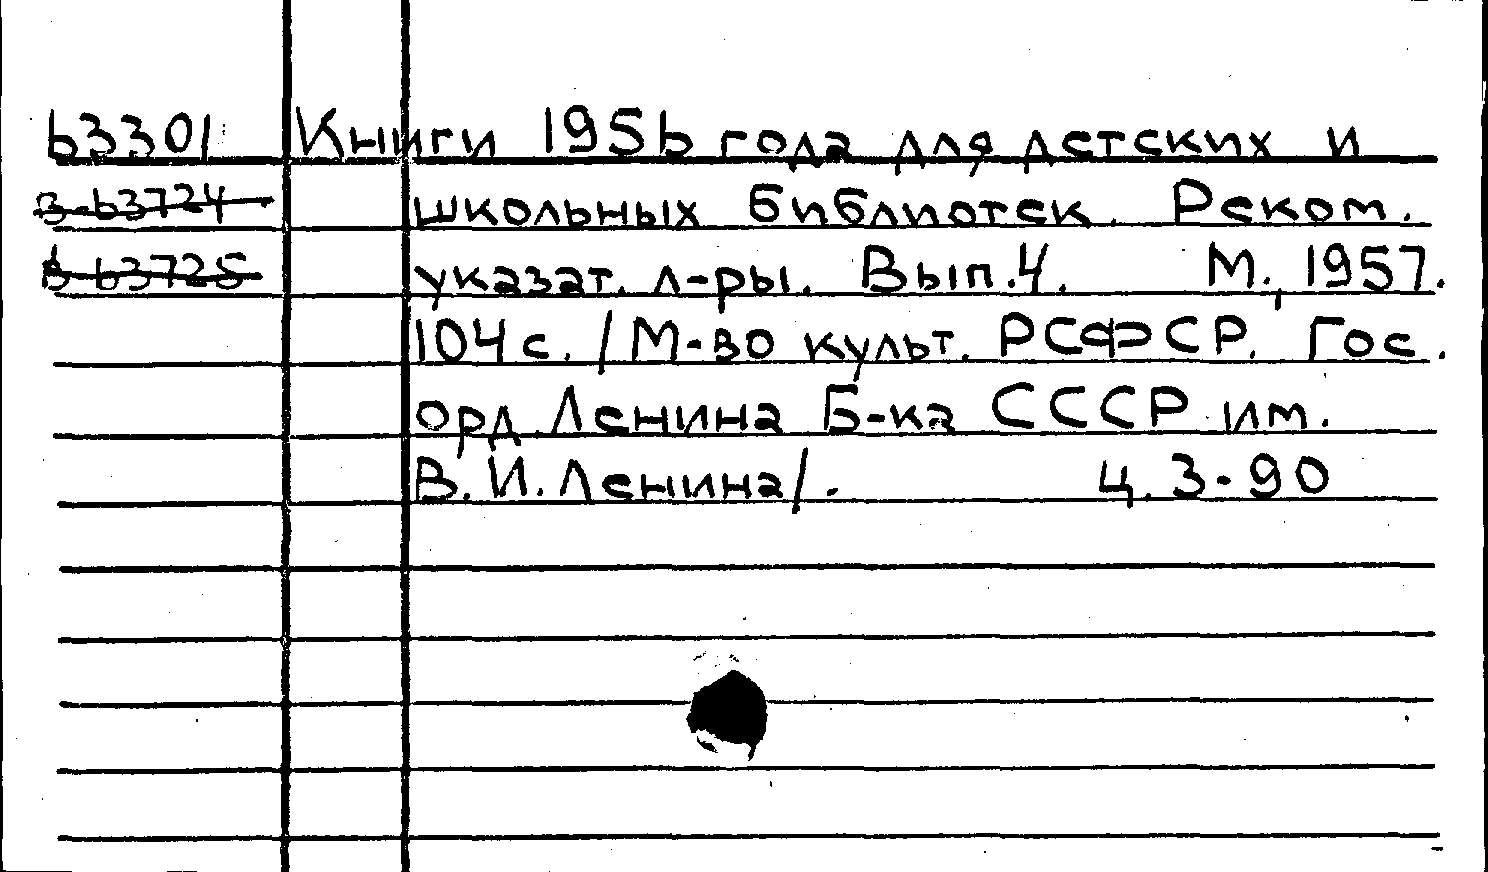 63301 Книги 1956 года для детских и
З-63724 школьных библиотек. Реком.
В 63725 указат. л-ры. Вып.4. М., 1957.
104 с. /М-во культ. РСФСР. Гос.
орд. Ленина Б-ка СССР им.
В. И. Ленина/. 4.3-90